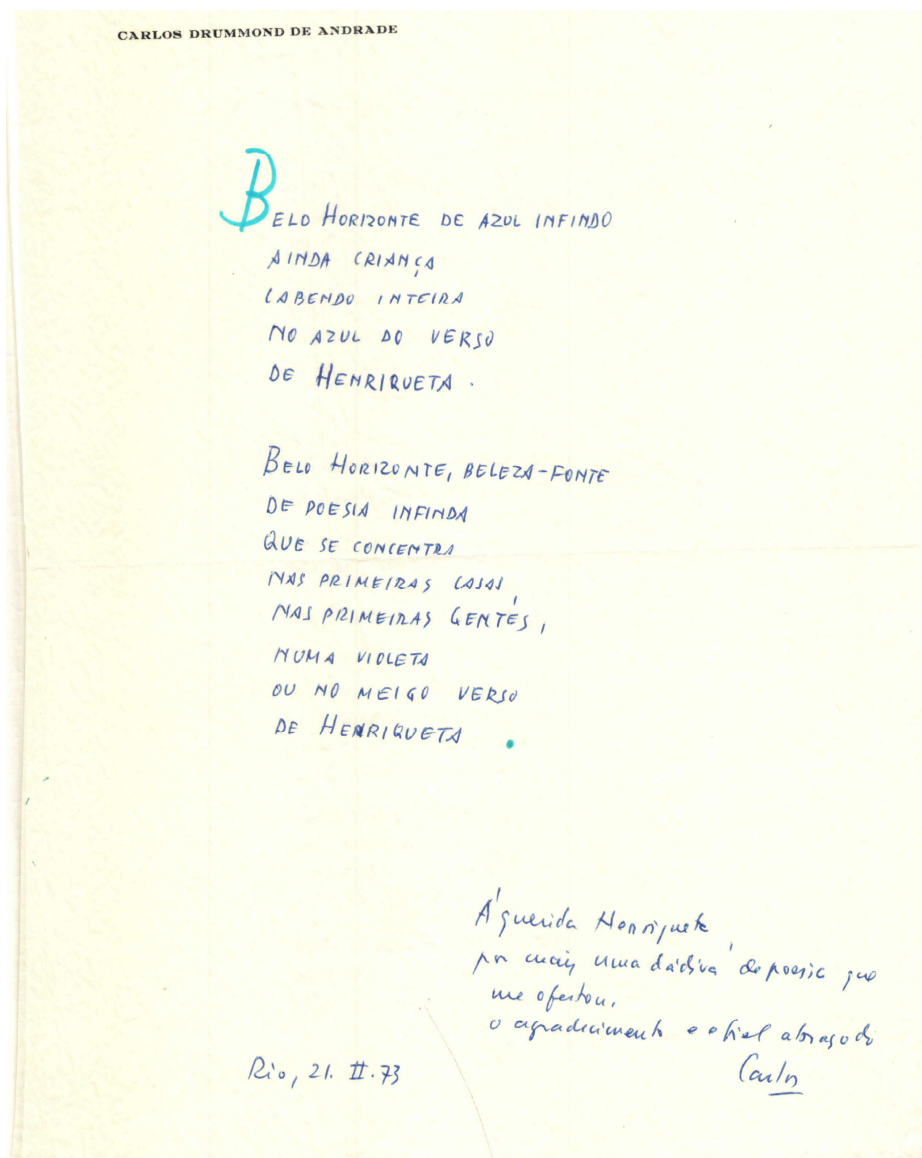 CARLOS DRUMMOND DE ANDRADE
BELO HORIZONTE DE AZUL INFINDO
AINDA CRIANÇA
CABENDO INTEIRA
NO AZUL DO VERSO
DE HENRIQUETA.
BELO HORIZONTE, BELEZA-FONTE
DE POESIA INFINDA
QUE SE CONCENTRA
NAS PRIMEIRAS CASAS,
NAS PRIMEIRAS GENTES,
NUMA VIOLETA
OU NO MEIGO VERSO
DE HENRIQUETA.
À querida Henriqueta,
por mais uma dádiva de poesia que
me ofertou,
o agradecimento e o fiel abraço do
Carlos
Rio, 21.II.73